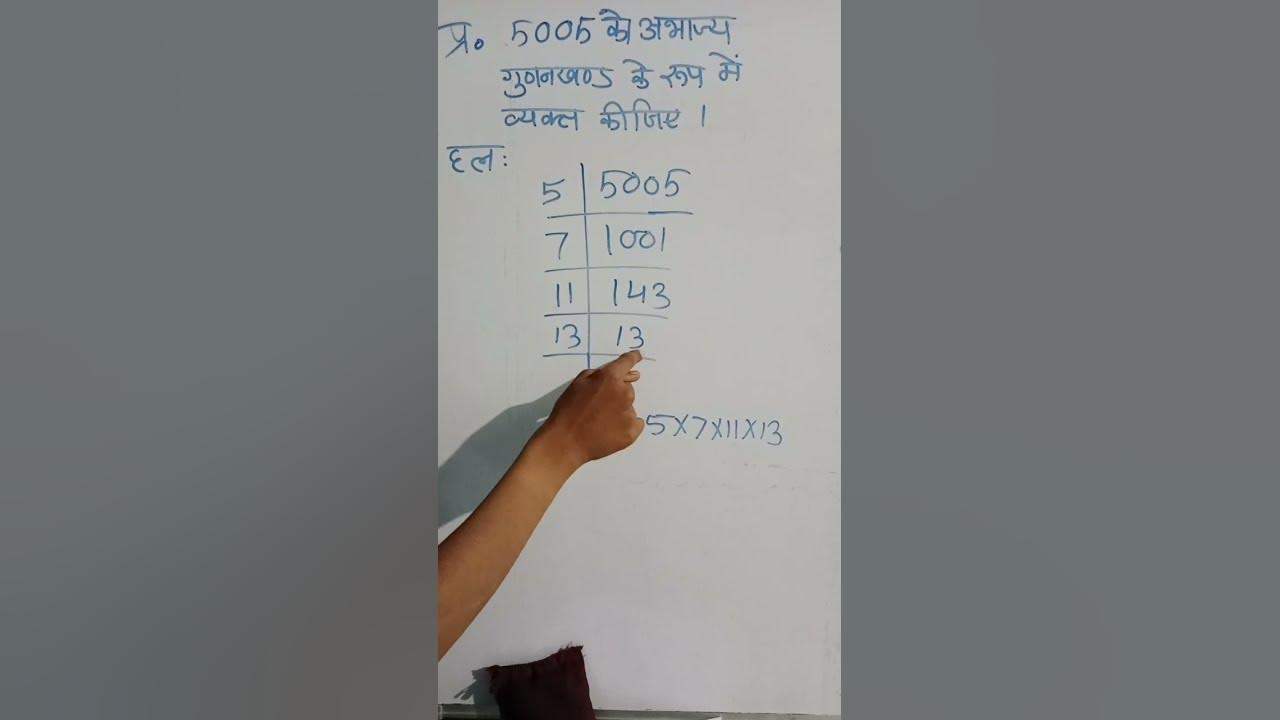 प्र० 5005 को अभाज्य
गुणनखण्ड के रूप में
व्यक्त कीजिए ।
हल:
5 | 5005
7 | 1001
11 | 143
13 | 13
5×7×11×13